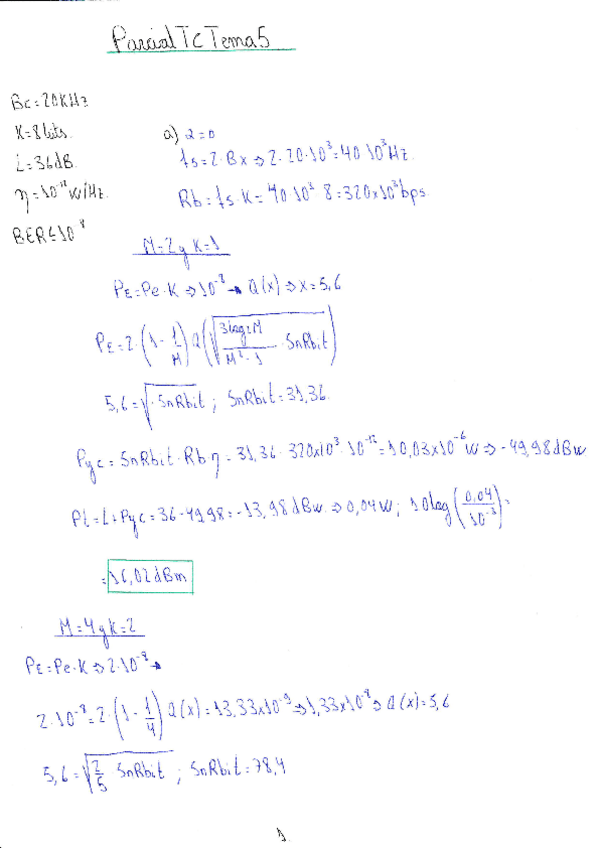 Parcial TC Tema 5
Bc = 20KHz
K = 8 bits.
L = 36dB.
η = 10^-12 W/Hz.
BER ≤ 10^-8
a) α = 0
fs = 2·Bx ⇒ 2·20·10^3 = 40·10^3 Hz.
Rb = fs·K = 40·10^3·8 = 320x10^3 bps.
M=2 y K=1
PE = Pe·K ⇒ 10^-8 → Q(x) ⇒ x = 5,6
PE = 2·(1 - 1/M) Q(√(3log2M/(M^2-1) · SnRbit))
5,6 = √(SnRbit); SnRbit = 31,36.
Pyc = SnRbit·Rb·η = 31,36·320x10^3·10^-12 = 10,03x10^-6 W ⇒ -49,98 dBW
Pl = L+Pyc = 36-49,98 = -13,98 dBw ⇒ 0,04 W; 10log(0,04/10^-3) =
= 16,02 dBm
M=4 y K=2
PE = Pe·K ⇒ 2·10^-8 →
2·10^-8 = 2·(1 - 1/4) Q(x) = 13,33x10^-9 ⇒ 1,33x10^-8 ⇒ Q(x) = 5,6
5,6 = √(2/5 SnRbit); SnRbit = 78,4
1